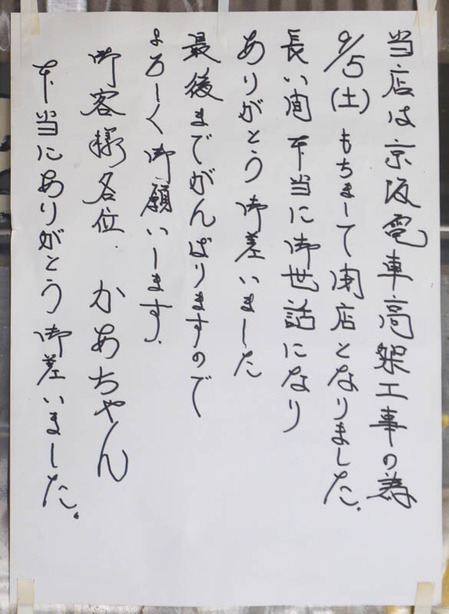 当店は京阪電車高架工事の為
9/5(土)もちまして閉店となりました.
長い間本当に御世話になり
ありがとう御差いました
最後までがんばりますので
よろしく御願いします.
御客様各位.かあちゃん
本当にありがとう御差いました。